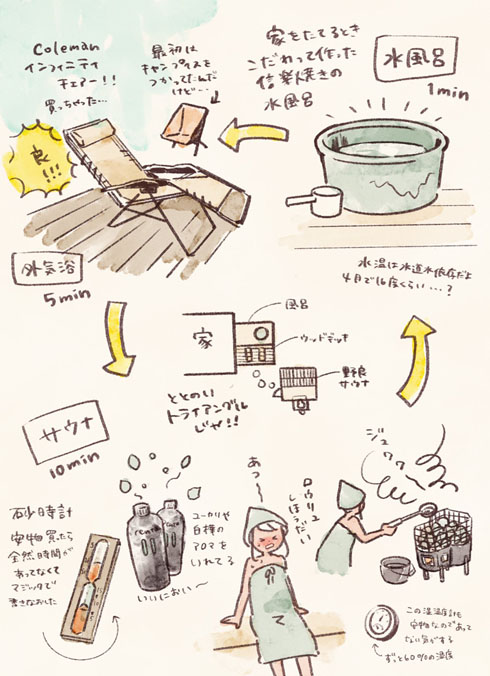 Coleman
インフィニティ
チェアー!!
買っちゃった…
最初は
キャンプイスを
つかってたんだ
けど…
家をたてるとき
こだわって作った
信楽焼きの
水風呂
水風呂
1min
良
!!!
外気浴
5min
水温は水道水依存だよ
4月で16度くらい…?
家
風呂
ウッドデッキ
野良
サウナ
ととのい
トライアングル
じゃ!!
サウナ
10min
砂時計
安物買ったら
全然時間が
あってなくて
マジックで
書きなおした
ユーカリや
白樺の
アロマを
いれてる
いいにおい〜
あっ〜
ロウリュ
しほうだい
ジュワワー
この温湿度計も
安物なのであって
ない気がする
ずっと60%の湿度